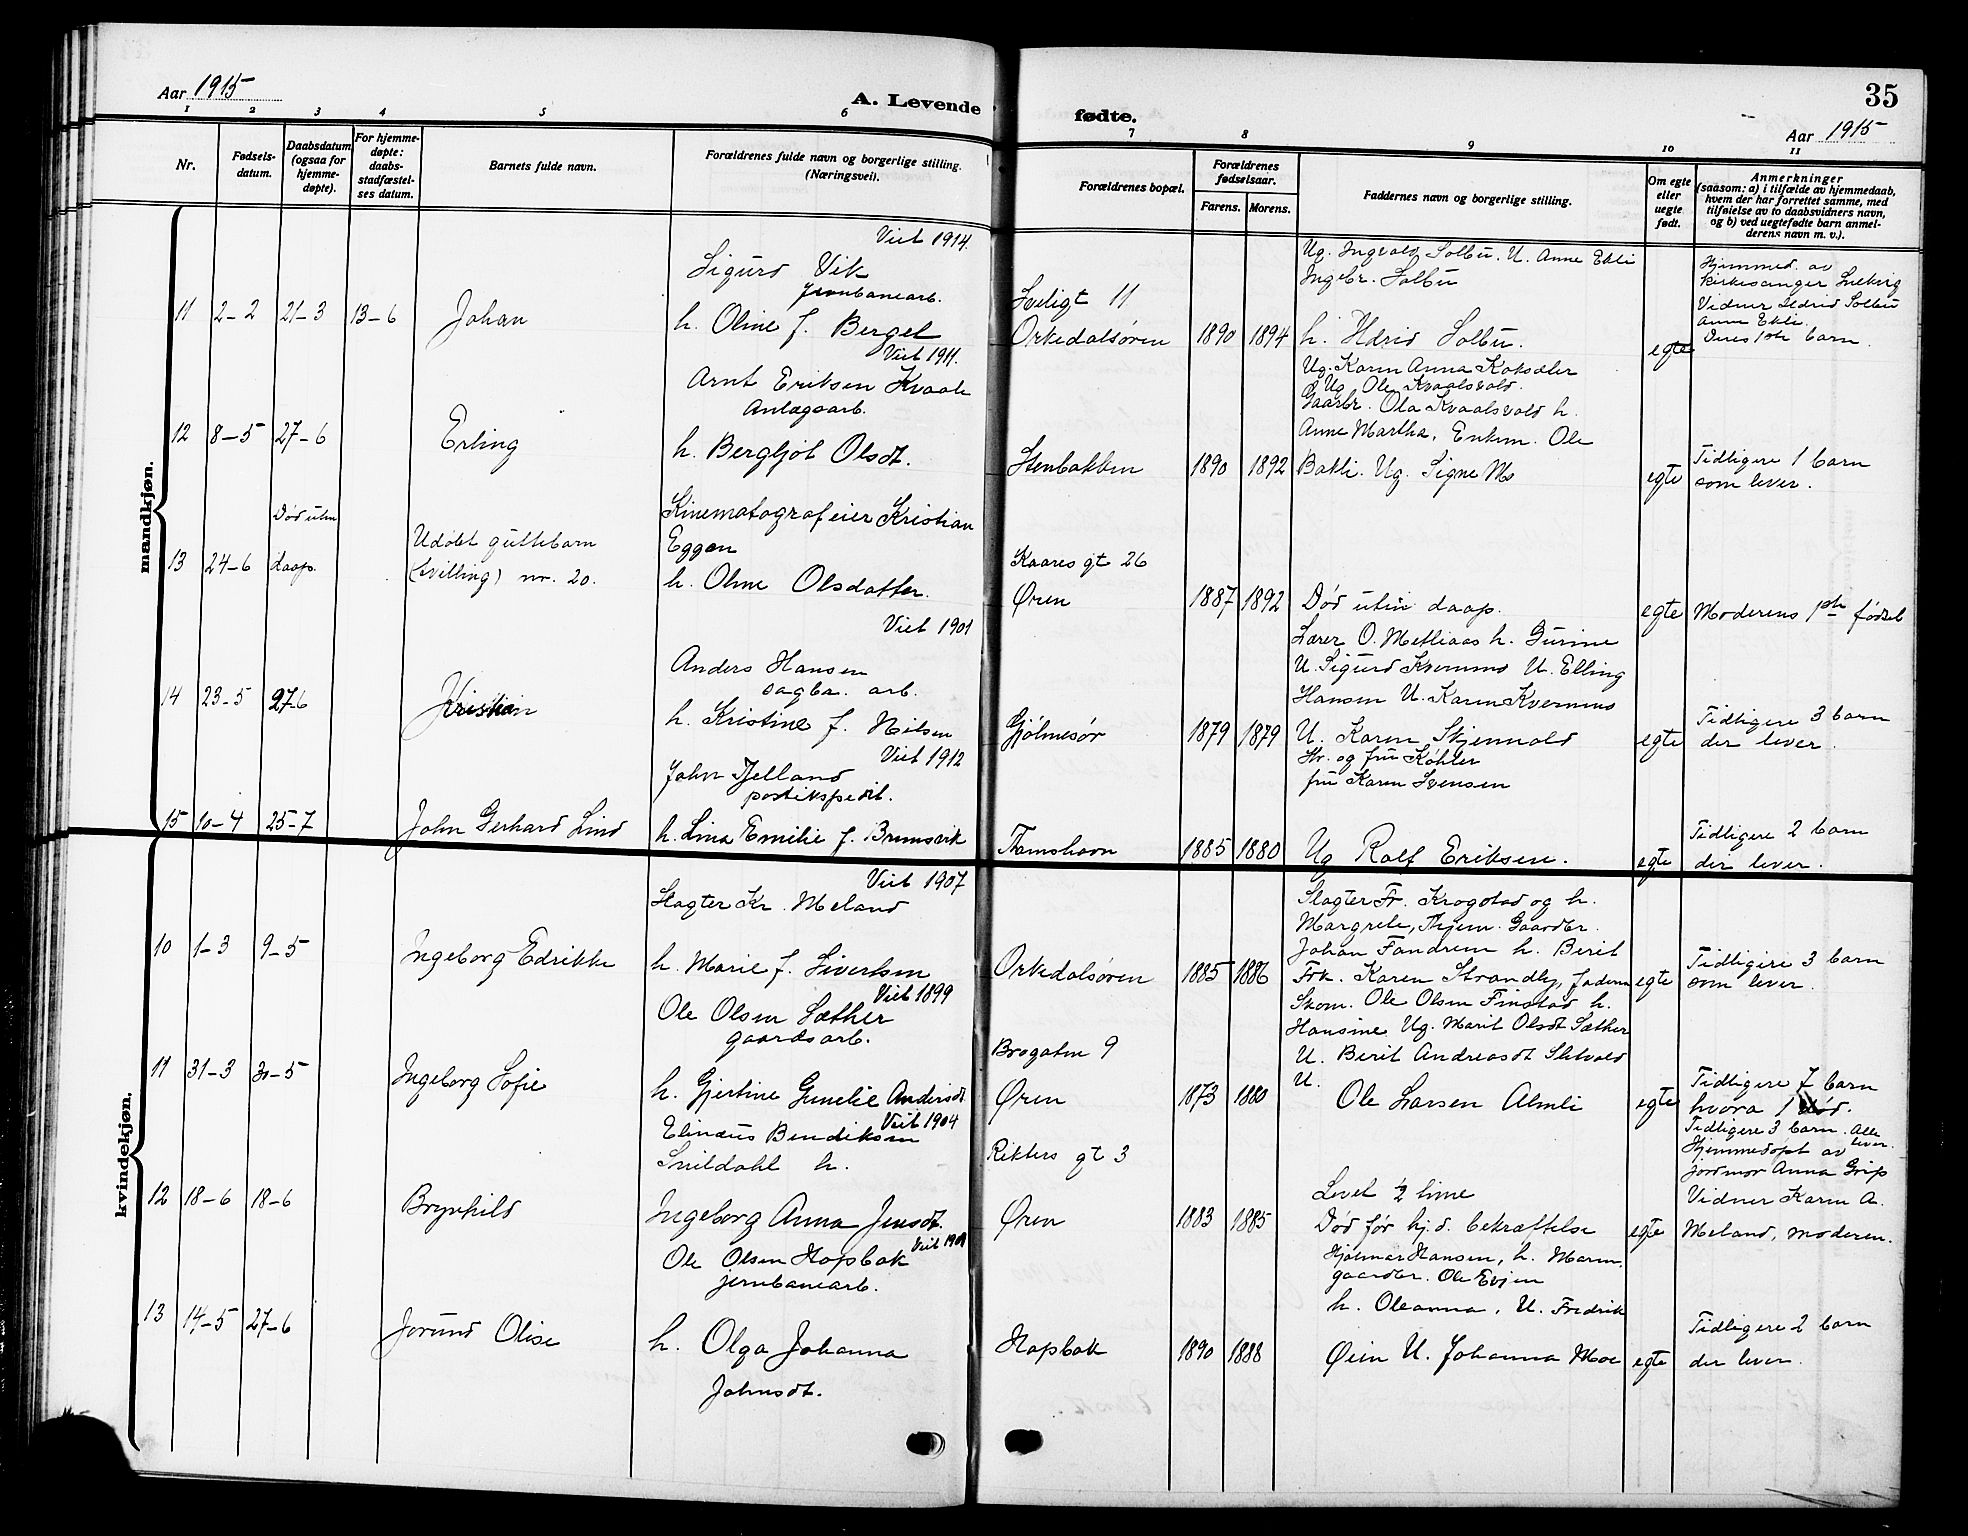 Aar 1915
A. Levende
fødte.
35
Aar 1915
1 2 3 4 5 6 7 8 9 10 11
Nr.
Fødsels-
datum.
Daabsdatum
(ogsaa for
hjemme-
døpte).
For hjemme-
døpte:
daabs-
stadfæstel-
ses datum.
Barnets fulde navn.
Forældrenes fulde navn og borgerlige stilling.
(Næringsvei).
Forældrenes bopæl.
Forældrenes
fødselsaar.
Farens. Morens.
Faddernes navn og borgerlige stilling.
Om egte
eller
uegte
født.
Anmerkninger
(saasom: a) i tilfælde av hjemmedaab,
hvem der har forrettet samme, med
tilføielse av to daabsvidners navn,
og b) ved uegtefødte barn anmel-
derens navn m. v.).
mandkjøn.
11 2-2 21-3 13-6 Johan
Viet 1914.
Sigurd Vik
Jernbanearb.
h. Oline f. Berget
11
Orkedalsøren 1890 1894
Ug. Ingvald Solbu. U. Anne Ekli
Ingebr. Solbu
h. Ildrid Solbu.
egte
Hjemmed. av
Kirkesanger
Vidner Ildrid Solbu
Anne Ekli.
Deres 1ste barn.
12 8-5 27-6 Erling
Viet 1911.
Arnt Eriksen Kvaale
Anlægsarb.
h. Bergljot Olsdt.
Stenbakken 1890 1892
Ug. Karen Anna
Ug. Ole Kvaalsvold.
Gaarbr. Ola Kvaalsvold h.
Anne Martha, Enkem. Ole
Bakli. Ug. Signe Mo
egte
Tidligere 1 barn
som lever.
13 24-6
Død uten
daap.
Udøbt guttebarn
(tvilling) nr. 20.
Kinematografeier Kristian
Eggen
h. Oline Olsdatter.
Kaares gt 26
Øren 1887 1892
Død uten daap.
egte
Moderens 1ste fødsel
14 23-5 27-6 Kristian
Viet 1901
Anders Hansen
sagbr. arb.
h. Kristine f. Nilsen
Gjølmesør 1879 1879
Lærer O. Metliaas h. Gurine
U. Sigurd Kvernmo U. Elling
Hansen U. Karen Kvernmo
U. Karen Skjenvald
egte
Tidligere 3 barn
der lever.
15 10-4 25-7 John Gerhard Lind
Viet 1912
John Tjelland
postekspedit.
h. Lina Emilie f. Brunsvik
Thamshavn 1885 1880
Hr. og fru Köhler
fru Karen Svensen
Ug Ralf Eriksen.
egte
Tidligere 2 barn
der lever.
kvindekjøn.
10 1-3 9-5 Ingeborg Edrikke
Viet 1907
Slagter Kr. Meland
h. Marie f. Sivertsen
Orkedalsøren 1885 1886
Slagter Fr. Krogstad og h.
Margrete, Thjem. Gaardbr.
Johan Fandrem h. Berit
Frk. Karen Strandly, faderen
egte
Tidligere 3 barn
som lever.
11 31-3 30-5 Ingeborg Sofie
Viet 1899
Ole Olsen Sæther
gaardsarb.
h. Gjertine Gunelie Andersdt.
Brogaten 9
Øren 1873 1880
Skom. Ole Olsen Finstad h.
Hansine Ug. Marit Olsdt Sæther
U. Berit Andreasdt
U.
Ole Larsen Almli
egte
Tidligere 7 barn
hvora 1 død.
12 18-6 18-6 Brynhild
Viet 1904
Elinæus Bendiksen
Snildahl h.
Ingeborg Anna Jensdt.
Rikters gt 3
Øren 1883 1885
Levet ½ time
Død før hj.d. bekræftelse
egte
Tidligere 3 barn. Alle
lever.
Hjemmedøpt av
jordmor Anna Grip
Vidner Karen A.
Meland, moderen.
13 14-5 27-6 Jorund Olise
Ole Olsen Hopbak
jernbanearb.
h. Olga Johanna
Johnsdt.
Hopbak 1890 1888
Hjalmar Hansen, h. Maren,
gaardbr. Ole Evjen
h. Oleanna, U. Fredrik
Øien U. Johanna Moe
egte
Tidligere 2 barn
der lever.